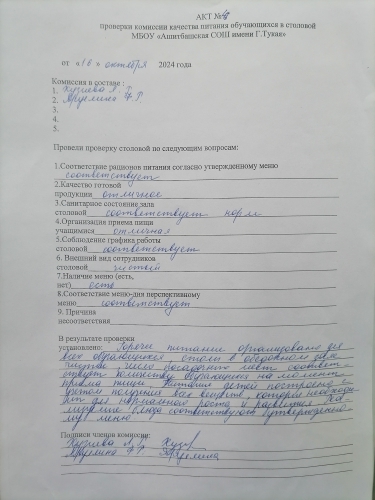 АКТ №4
проверки комиссии качества питания обучающихся в столовой
МБОУ «Ашитбашская СОШ имени Г.Тукая»
от «16» октября 2024 года
Комиссия в составе :
1. Кузиева Л. Г.
2. Яруллина Ф.Р.
3.
4.
5.
Провели проверку столовой по следующим вопросам:
1.Соответствие рационов питания согласно утвержденному меню
соответствует
2.Качество готовой
продукции отличное
3.Санитарное состояние зала
столовой соответствует норм
4.Организация приема пищи
учащимися отличная
5.Соблюдение графика работы
столовой соответствует
6. Внешний вид сотрудников
столовой чистый
7.Наличие меню (есть,
нет) есть
8.Соответствие меню-дня перспективному
меню соответствует
9. Причина
несоответствия
В результате проверки
установлено: Горячее питание организовано для
всех обучающихся, столы в обеденном зале
чистые, число посадочных мест соответ-
ствует количеству обучающихся на момент
приема пищи. Питание детей построено с
учетом получения всех веществ, которые необходи-
мы для нормального роста и развития. Ка-
блюда соответствуют утвержденно-
му меню
Подписи членов комиссии:
Кузиева Л. Г.
Яруллина Ф.Р. Яруллина